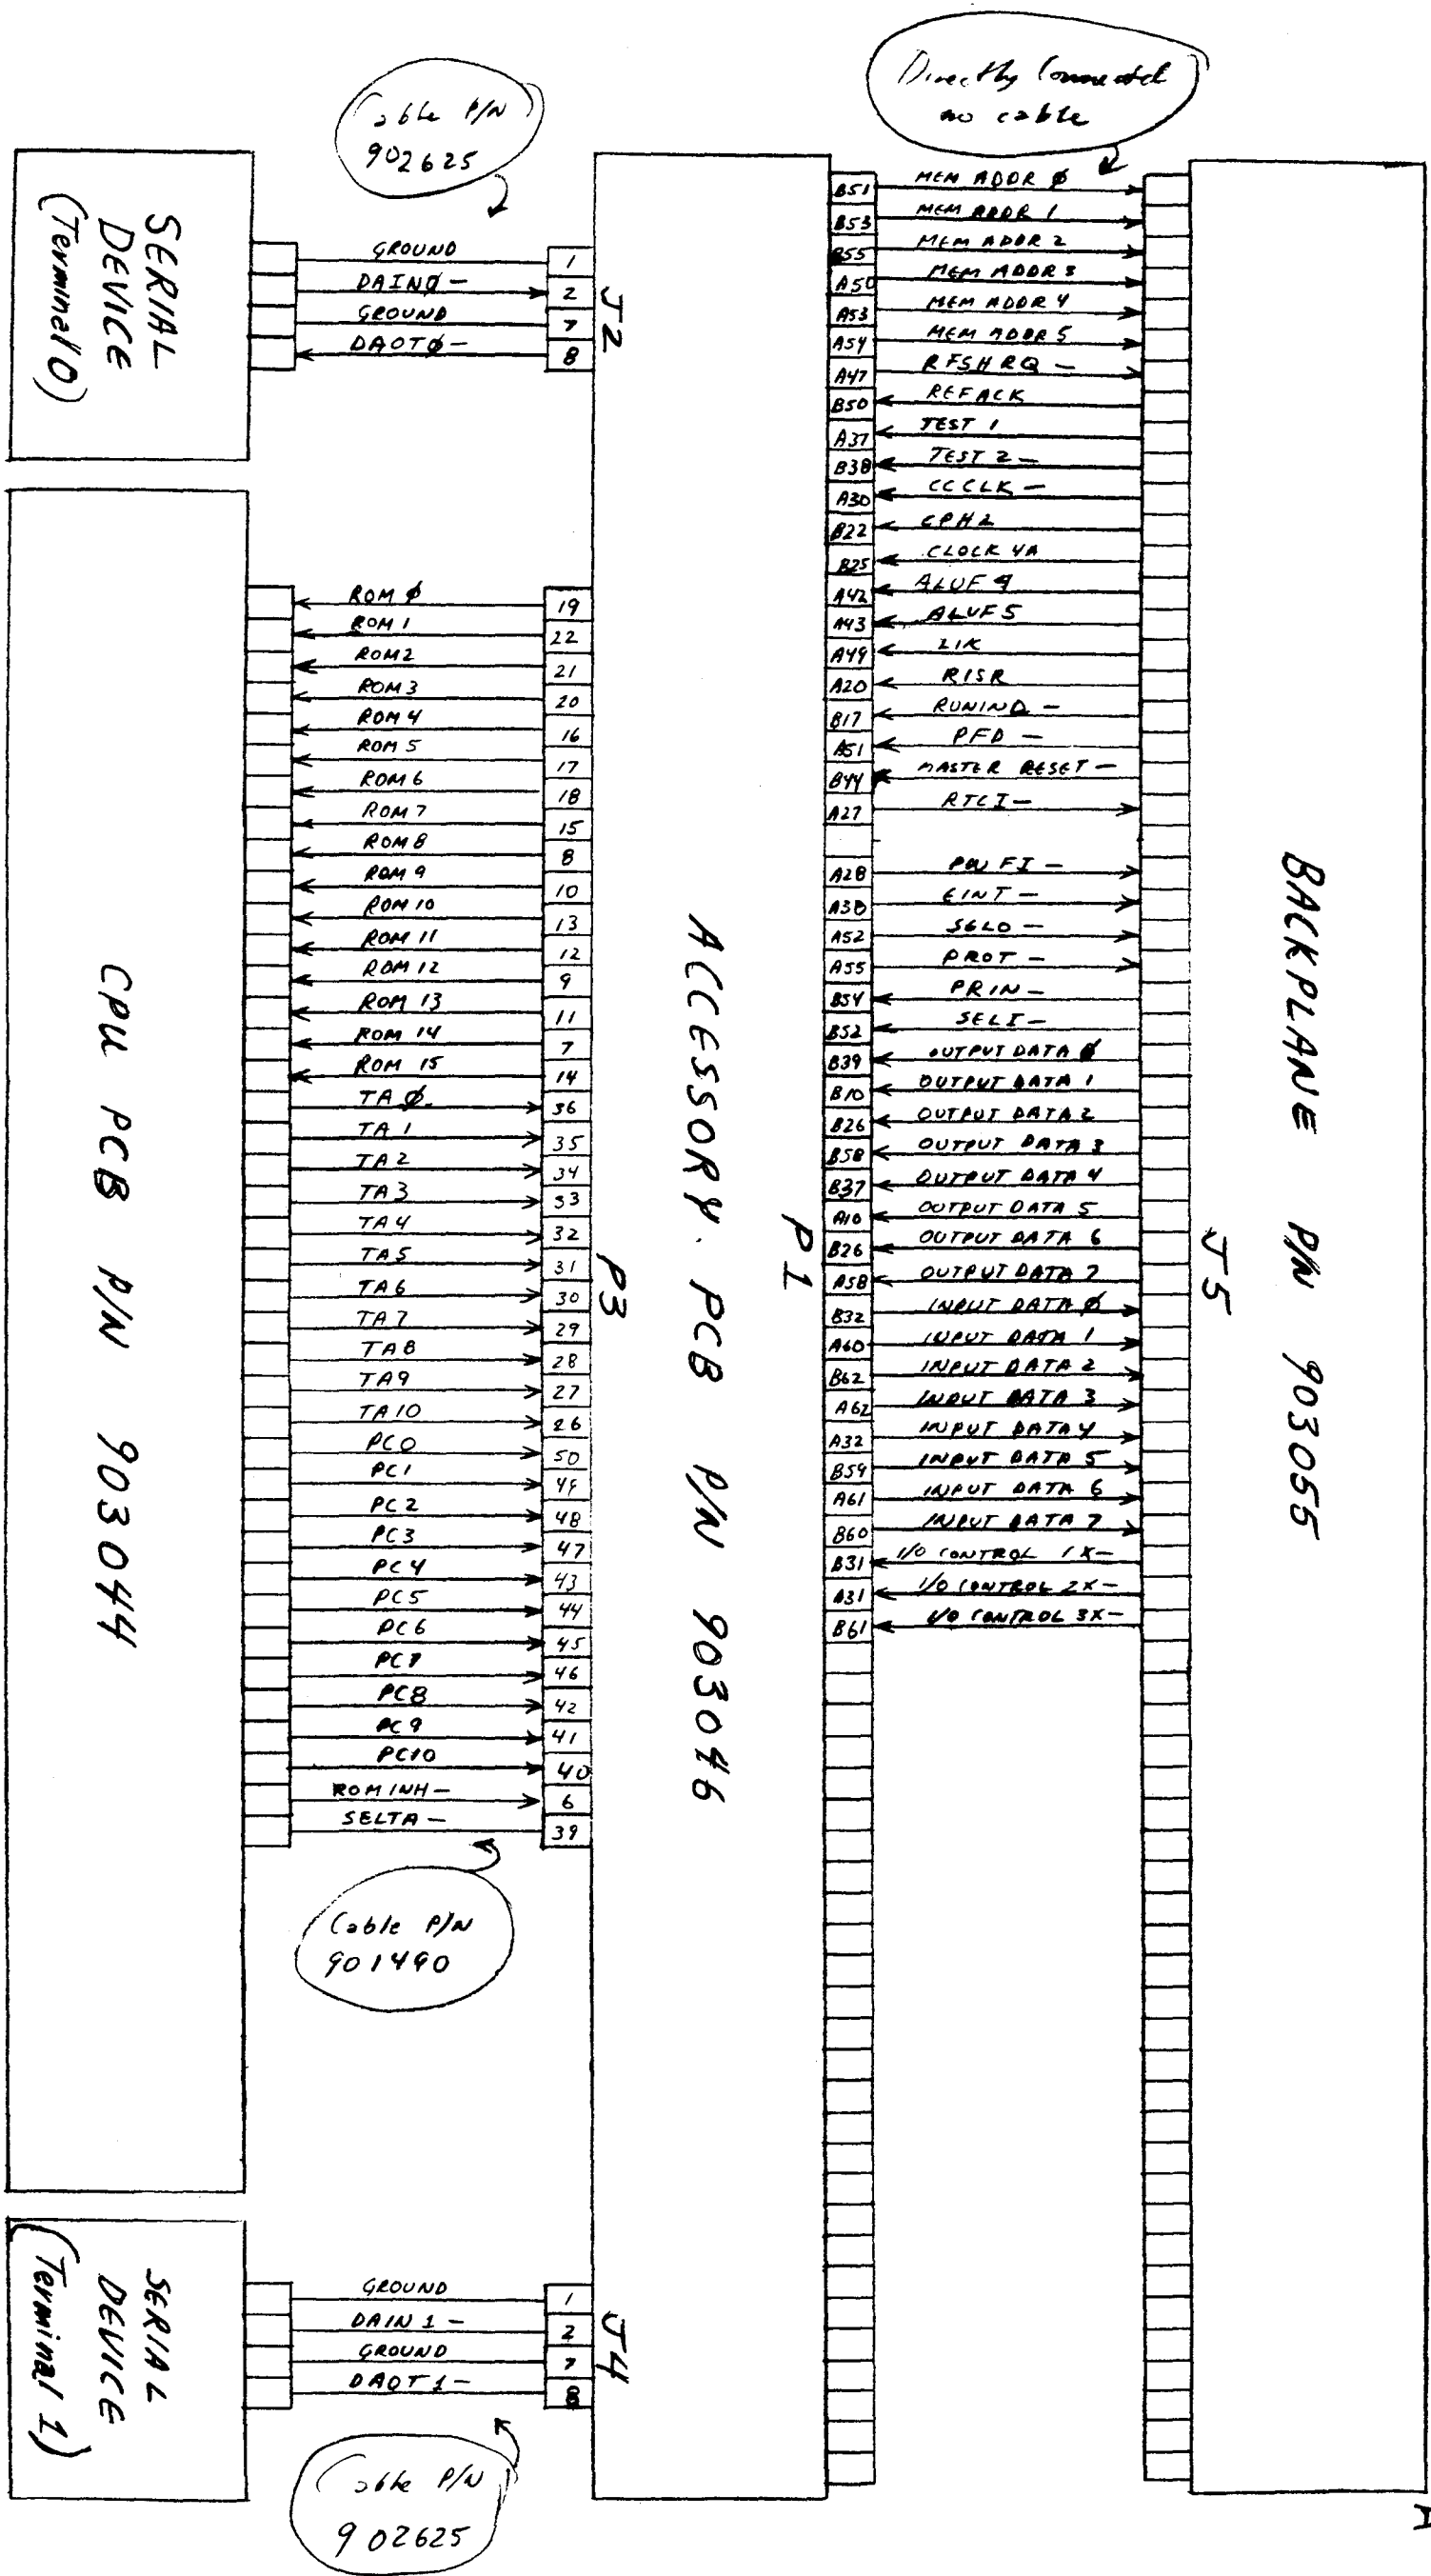 Cable P/N
902625
Directly Connected
no cable
SERIAL
DEVICE
(Terminal 0)
GROUND 1
DAINØ— 2
GROUND 7
DAOTØ— 8
J2
CPU PCB P/N 903044
ROM Ø 19
ROM 1 22
ROM2 21
ROM3 20
ROM 4 16
ROM 5 17
ROM6 18
ROM 7 15
ROM 8 8
ROM 9 10
ROM 10 13
ROM 11 12
ROM 12 9
ROM 13 11
ROM 14 7
ROM 15 14
TA Ø 36
TA 1 35
TA 2 34
TA3 33
TA4 32
TA5 31
TA6 30
TA7 29
TA8 28
TA9 27
TA10 26
PC0 50
PC1 49
PC2 48
PC3 47
PC4 43
PC5 44
PC6 45
PC7 46
PC8 42
PC9 41
PC10 40
ROM INH— 6
SELTA— 39
P3
Cable P/N
901490
SERIAL
DEVICE
(Terminal 1)
GROUND 1
DAIN 1— 2
GROUND 7
DAOT 1— 8
J4
Cable P/N
902625
ACCESSORY. PCB P/N 903046
P1
B51 MEM ADDR Ø
B53 MEM ADDR 1
B55 MEM ADDR 2
A50 MEM ADDR 3
A53 MEM ADDR 4
A54 MEM ADDR 5
A47 RFSHRQ —
B50 REFACK
A37 TEST 1
B38 TEST 2 —
A30 CCCLK —
B22 CPH2
B25 CLOCK 4A
A42 ALUF 4
A43 ALUF 5
A49 LIK
A20 RISR
B17 RUNIND —
A51 PFD —
B44 MASTER RESET —
A27 RTCI —
A28 POW FI —
A38 EINT —
A52 SGLO —
A55 PROT —
B54 PRIN —
B52 SELI —
B39 OUTPUT DATA Ø
B10 OUTPUT DATA 1
B26 OUTPUT DATA 2
B58 OUTPUT DATA 3
B37 OUTPUT DATA 4
A10 OUTPUT DATA 5
B26 OUTPUT DATA 6
A58 OUTPUT DATA 7
B32 INPUT DATA Ø
A60 INPUT DATA 1
B62 INPUT DATA 2
A62 INPUT DATA 3
A32 INPUT DATA 4
B59 INPUT DATA 5
A61 INPUT DATA 6
B60 INPUT DATA 7
B31 I/O CONTROL 1X—
A31 I/O CONTROL 2X—
B61 I/O CONTROL 3X—
J5
BACKPLANE P/N 903055